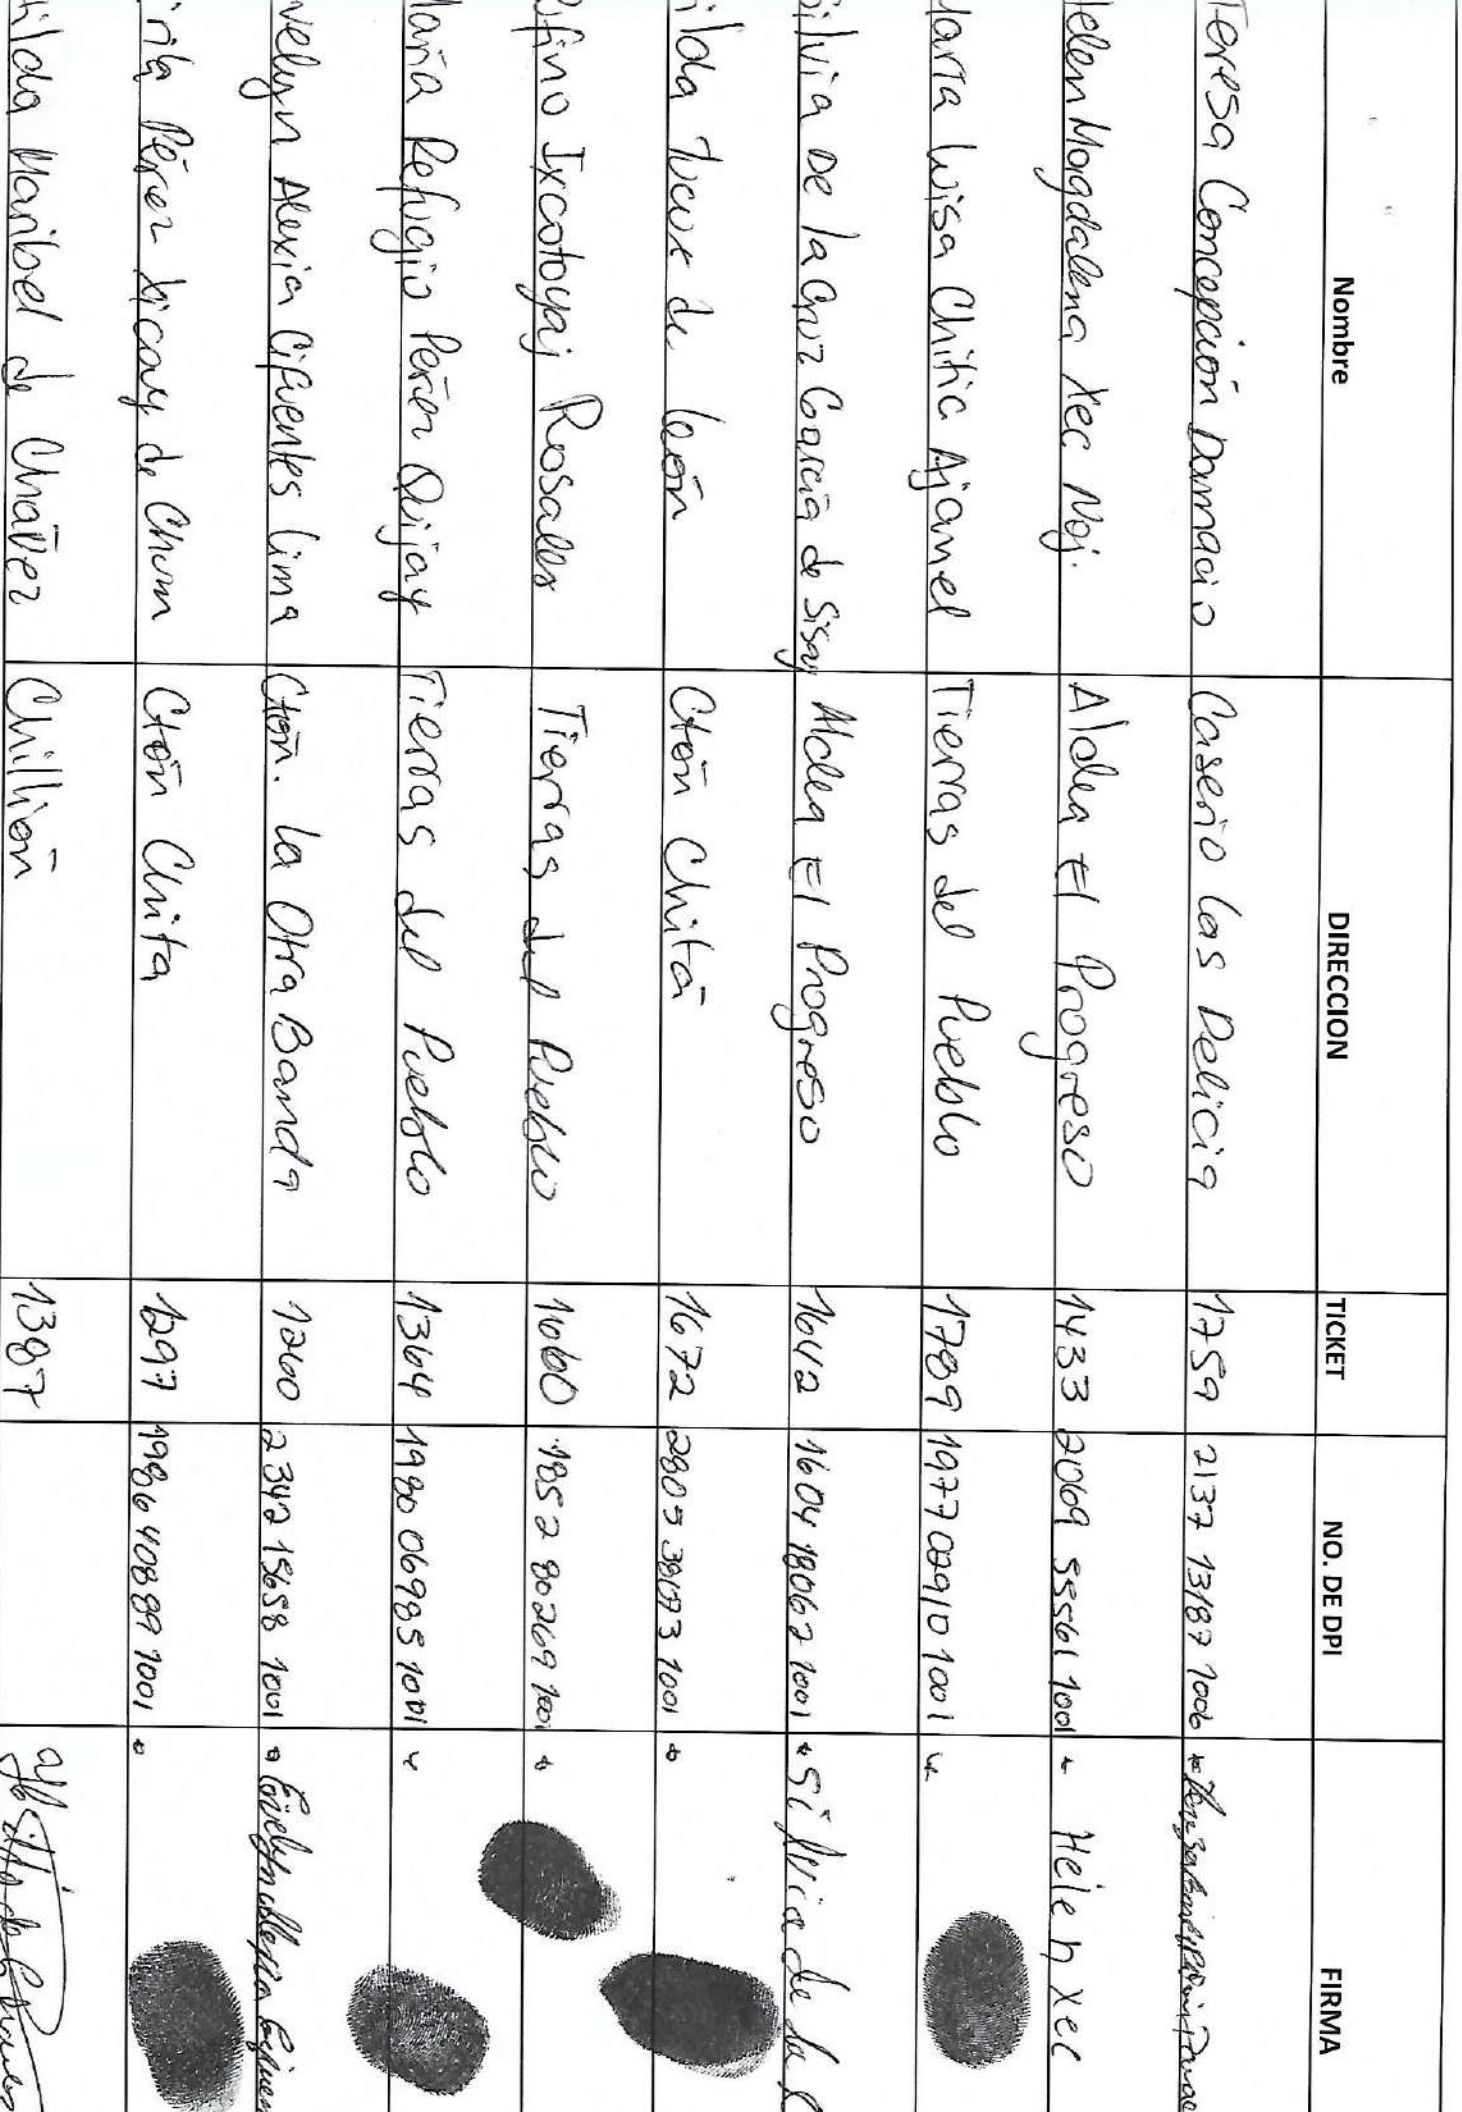 Nombre DIRECCION TICKET NO. DE DPI FIRMA
Teresa Concepción Damacio Caserio las Delicia 1759 2137 13187 1006
Helen Magdalena Xec Noj. Aldea El Progreso 1433 2069 55561 1001 Helen Xec
Maria Luisa Chitic Ajanel Tierras del Pueblo 1789 1977 02910 1001
Silvia De la Cruz Garcia de Sisay Aldea El Progreso 1642 1604 18062 1001 Silvia de la C
ilda Tucux de león Ctón Chitá 1672 1001
ofino Ixcotoyaj Rosales Tierras del Pueblo 1660 1852 80269 1001
Maria Refugio Pérez Quijay Tierras del Pueblo 1364 1980 06985 1001
velyn Alexia Cifuentes Lima Ctón. La Otra Banda 1260 2342 15658 1001
Pérez Xicay de Chum Ctón Chita 1297 1986 40889 1001
ilda Maribel de Chávez Chillión 1387